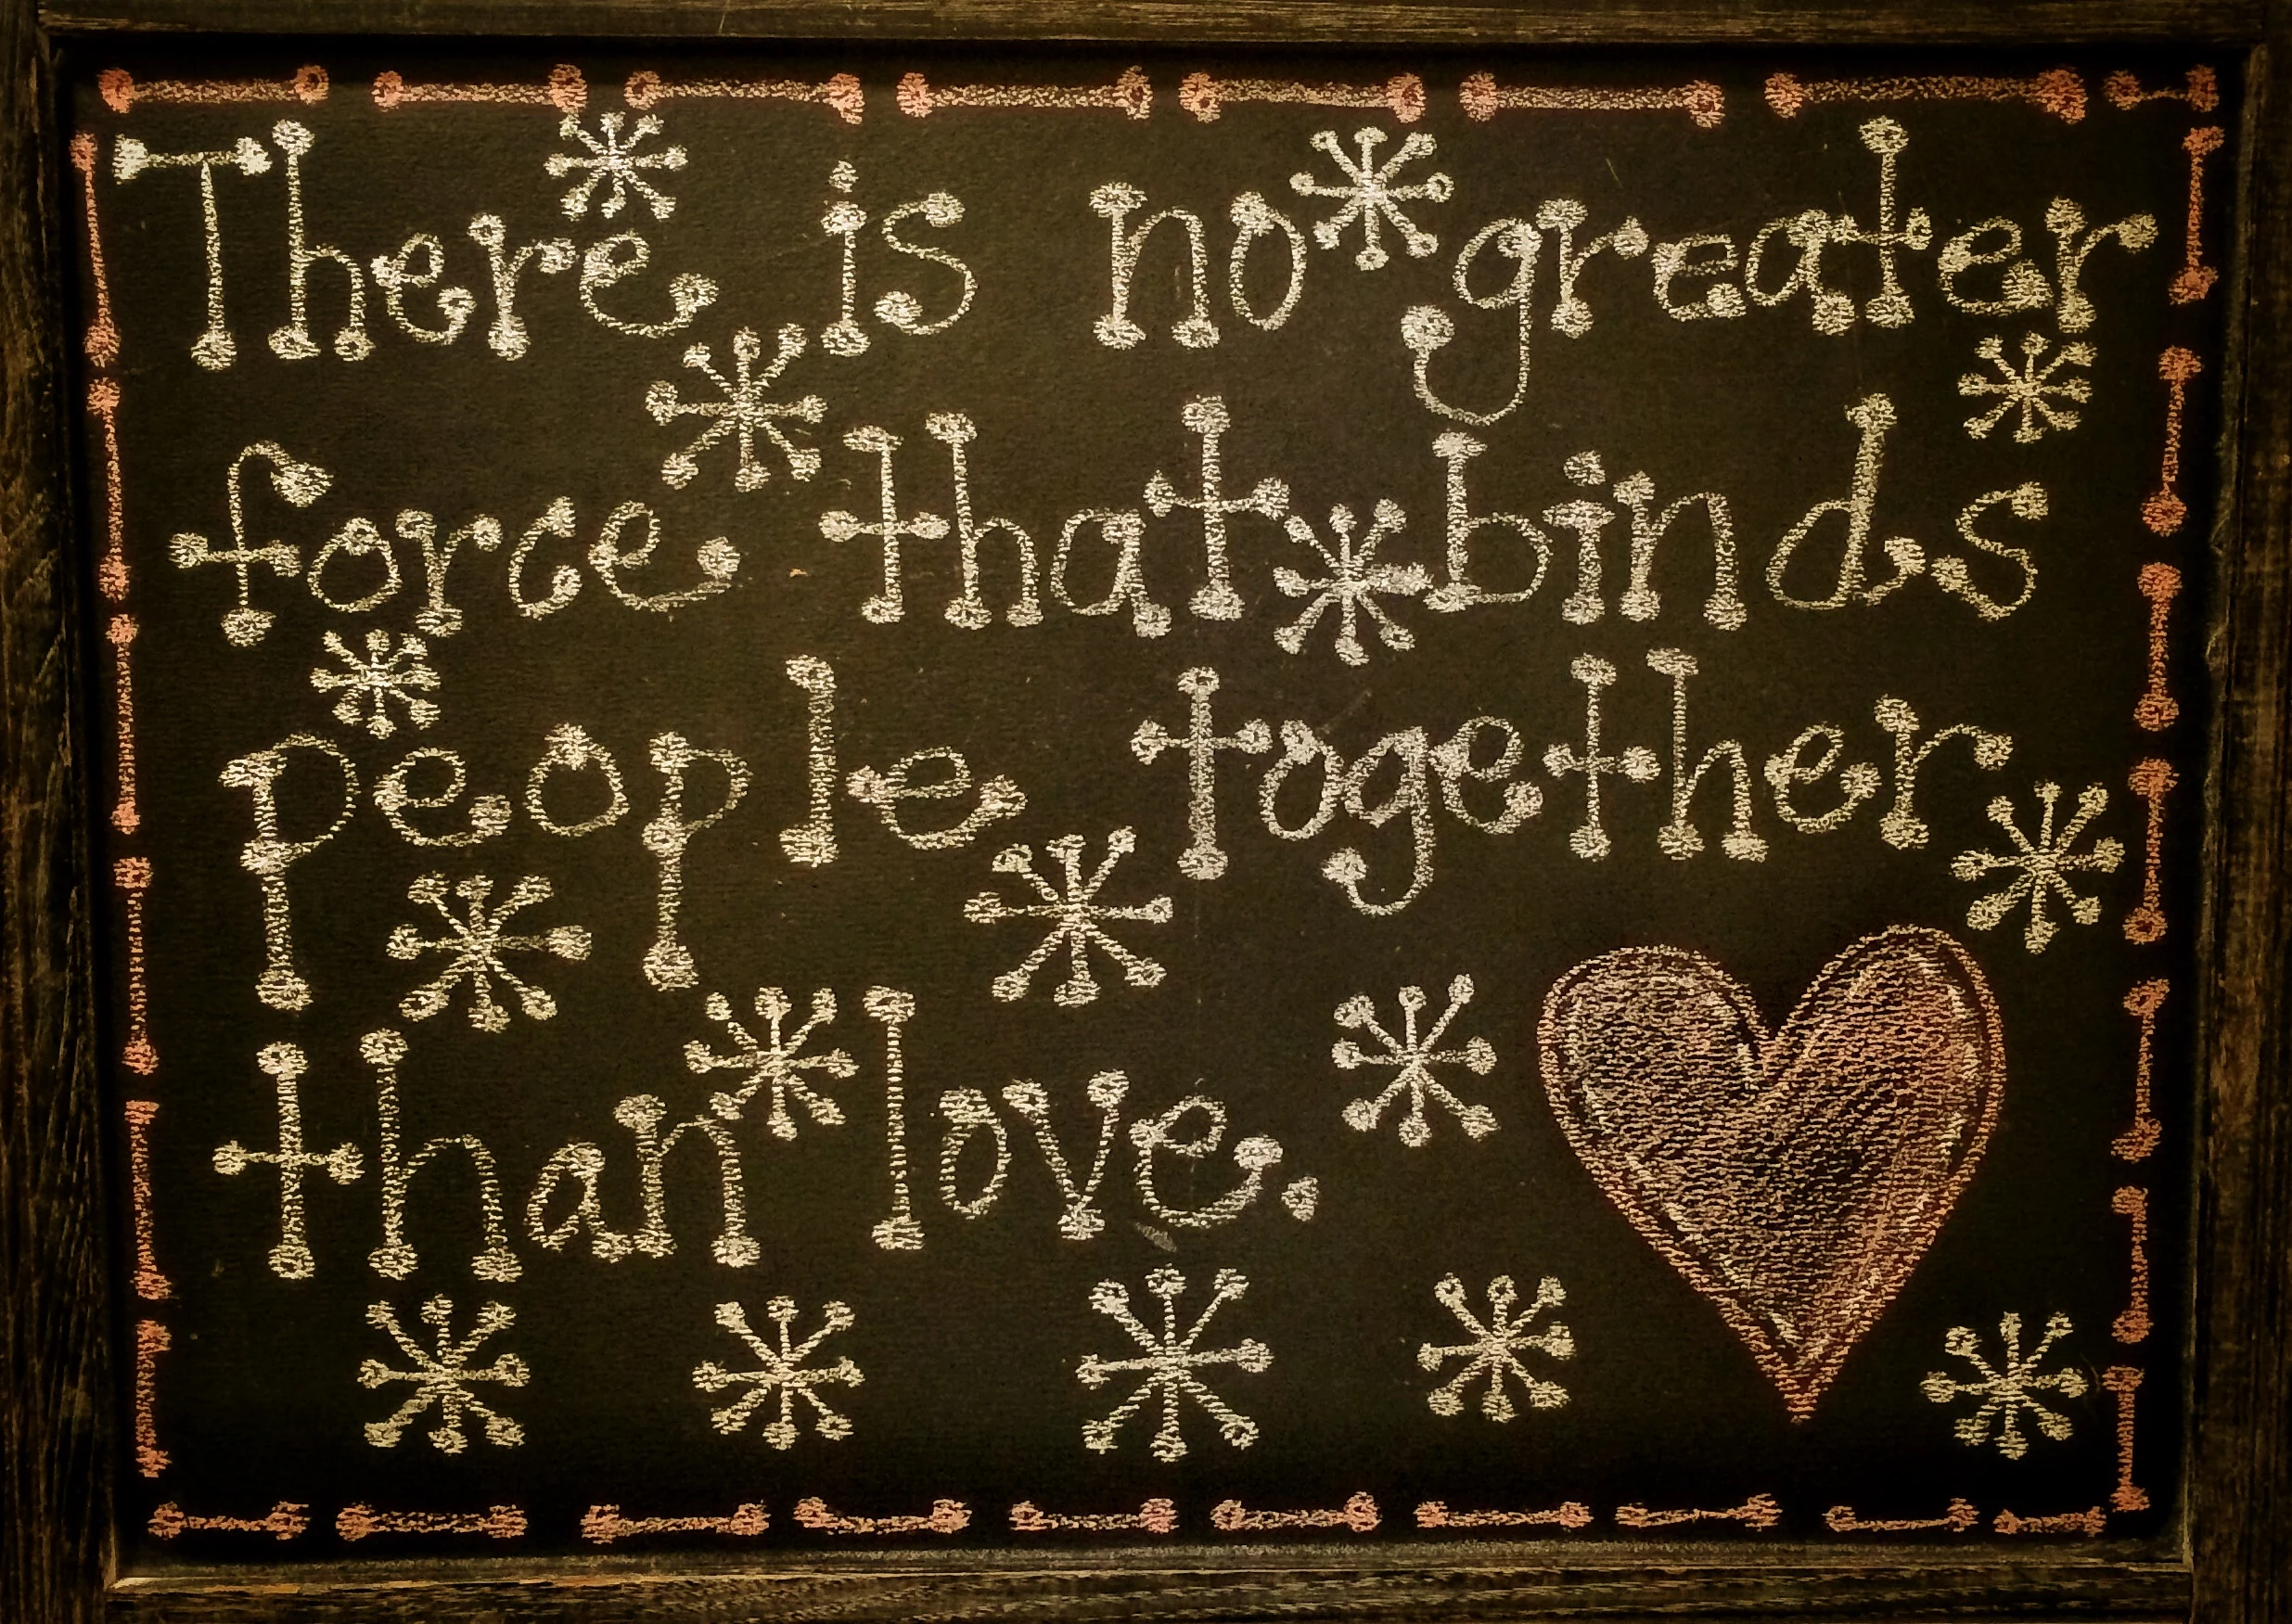 There is no greater
force that binds
people together
than love.